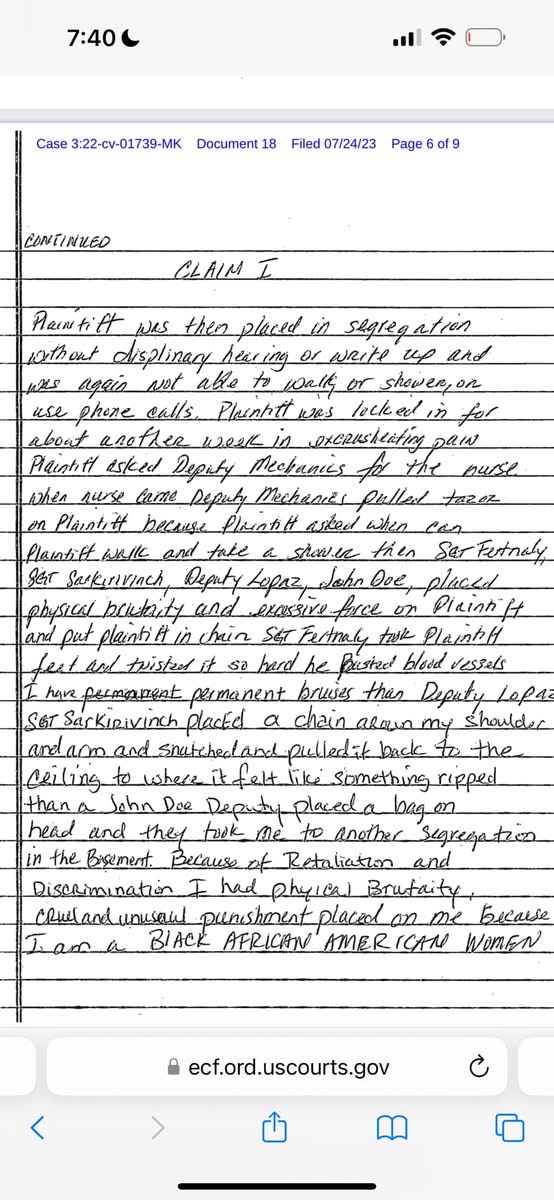 7:40
Case 3:22-cv-01739-MK Document 18 Filed 07/24/23 Page 6 of 9
CONTINUED
CLAIM I
Plaintiff was then placed in segregation
without displinary hearing or write up and
was again not able to walk, or shower, or
use phone calls. Plaintiff was locked in for
about another week in excrusheating pain
Plaintiff asked Deputy Mechanics for the nurse
when nurse came Deputy Mechanics pulled tazoz
on Plaintiff because Plaintiff asked when can
Plaintiff walk and take a shower then SGT Fertnaly,
SGT Sarkirivinch, Deputy Lopaz, John Doe, placed
physical brutaity and excessive force on Plaintift
and put plaintift in chain SGT Fertnaly took Plaintiff
feet and twisted it so hard he Busted blood vessels
I have permanent permanent bruises than Deputy Lopaz
SGT Sarkirivinch placed a chain aroun my shoulder
and arm and snatched and pulled it back to the
ceiling to where it felt like something ripped
than a John Doe Deputy placed a bag on
head and they took me to another segregation
in the Basement. Because of Retaliation and
Discrimination I had phyical Brutaity,
cruel and unusaul punishment placed on me because
I am a BLACK AFRICAN AMERICAN WOMEN
ecf.ord.uscourts.gov